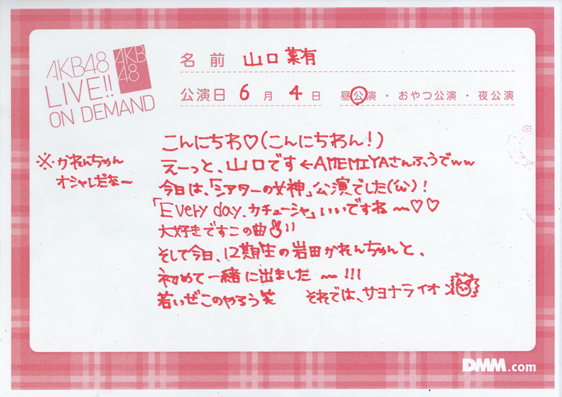 AKB48
LIVE!!
ON DEMAND
AKB
48
名前 山口菜有
公演日 6月 4日 昼公演・おやつ公演・夜公演
こんにちわ♡(こんにちわん!)
※かれんちゃん
オシャレだな〜
えーっと、山口です←AMEMIYAさんふうでww
今日は、「シアターの女神」公演でした(ω)!
「Every day、カチューシャ」いいですね〜♡♡
大好きですこの曲✌!!
そして今日、12期生の岩田かれんちゃんと、
初めて一緒に出ました〜!!!
若いぜこのやろう笑 それでは、サヨナライオン
DMM.com